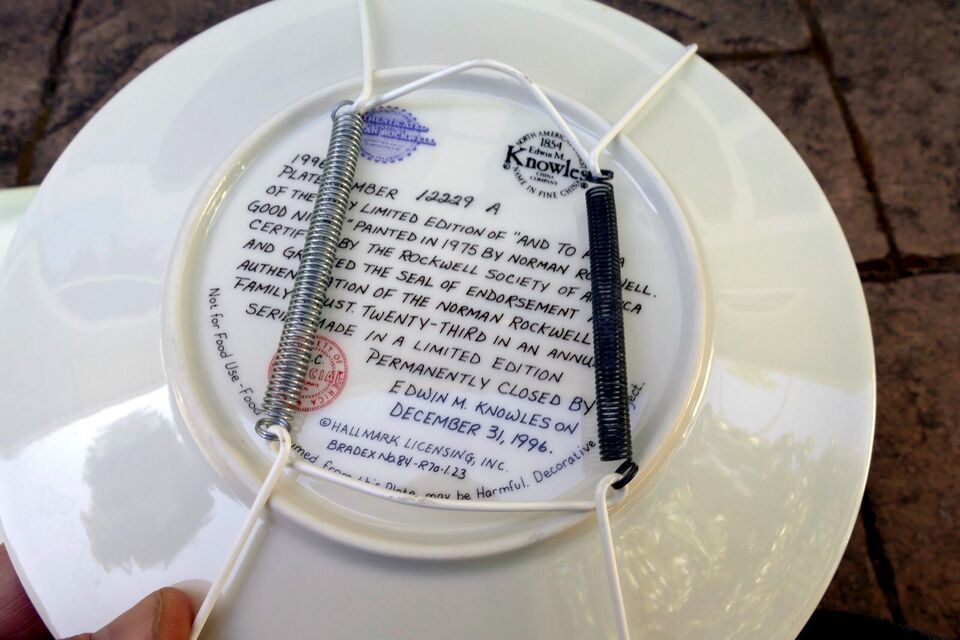 NORMAN ROCKWELL
NORTH AMERI
1854
Edwin M.
Knowles
CHINA
COMPANY
NAME IN FINE CHINA
1996
PLATE NUMBER 12229 A
OF THE LIMITED EDITION OF "AND TO A
GOOD NI " PAINTED IN 1975 BY NORMAN RO WELL.
CERTIF BY THE ROCKWELL SOCIETY OF A ICA
AND GR ED THE SEAL OF ENDORSEMENT
AUTHEN TION OF THE NORMAN ROCKWELL
FAMILY UST. TWENTY-THIRD IN AN ANNU
SERIE MADE IN A LIMITED EDITION
PERMANENTLY CLOSED BY
EDWIN M. KNOWLES ON
DECEMBER 31, 1996.
©HALLMARK LICENSING, INC.
BRADEX No.84-R70-1.23
Not for Food Use - Food
umed from this Plate may be Harmful. Decorative ject.